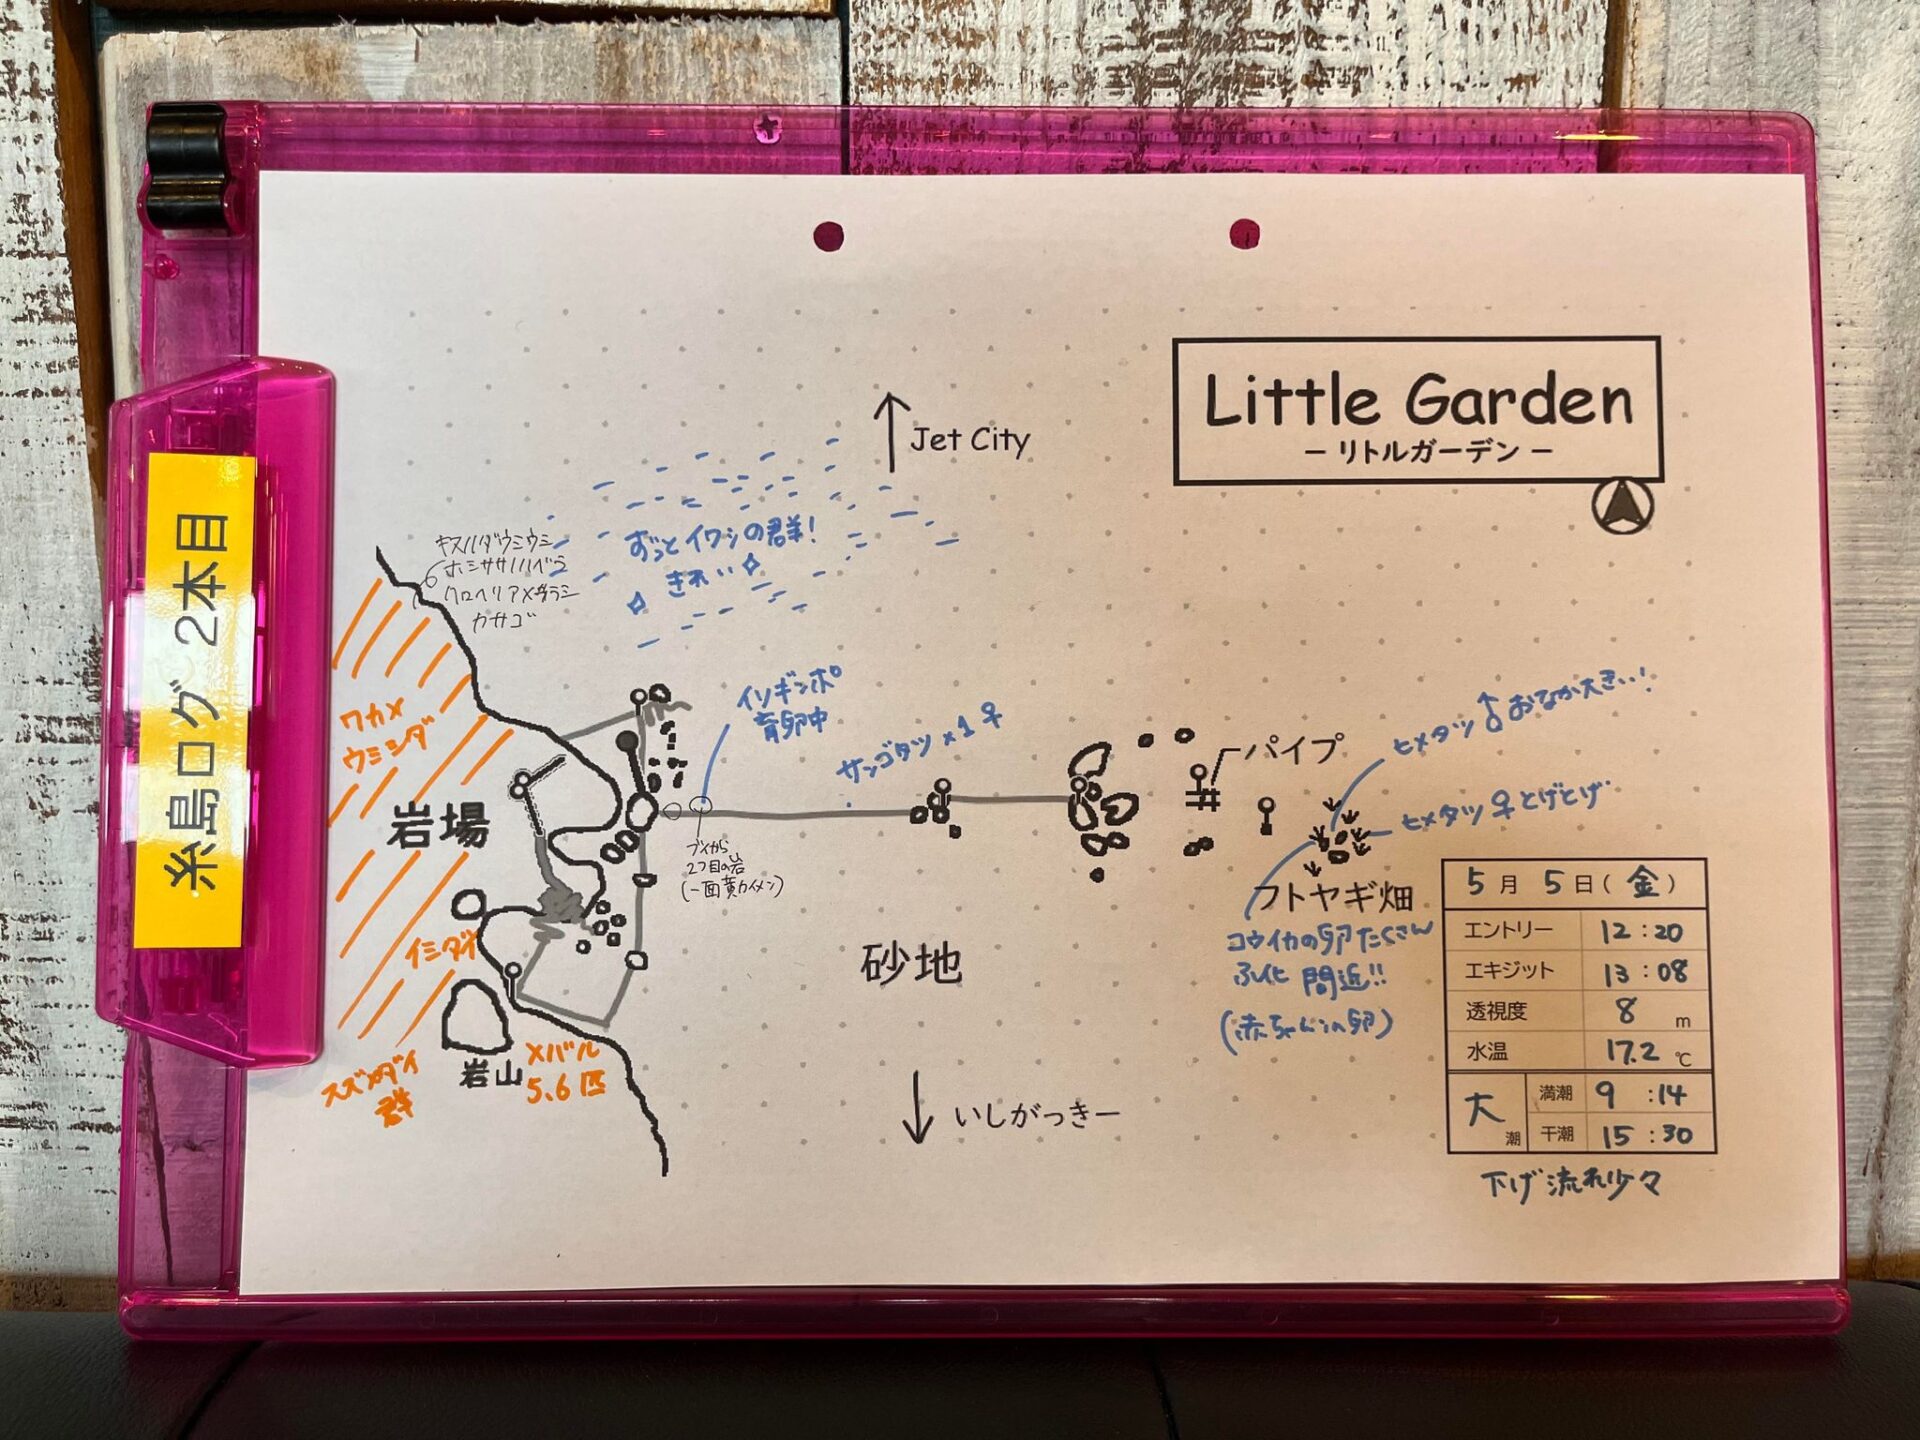 糸島ログ 2本目
Little Garden
－リトルガーデン－
Jet City
ずっとイワシの群!
きれい
キヌハダウミウシ
ホシササノハベラ
クロヘリアメフラシ
カサゴ
ワカメ
ウミシダ
岩場
イソギンポ
育卵中
サンゴタツ×1♀
パイプ
ヒメタツ♂おなか大きい!
ヒメタツ♀とげとげ
ブイから
2つ目の岩
(一面黄カイメン)
フトヤギ畑
コウイカの卵たくさん
ふ化間近!!
(赤ちゃんの卵)
砂地
イシダイ
岩山
メバル
5.6匹
スズメダイ
群
いしがっきー
5月5日(金)
エントリー 12:20
エキジット 13:08
透視度 8m
水温 17.2℃
大潮 満潮 9:14
干潮 15:30
下げ流れ少々